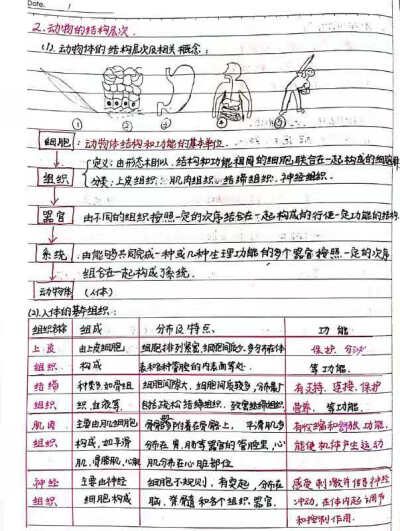 Date. /
2. 动物的结构层次.
(1). 动物体的结构层次及相关概念:
① ② ③ ④ ⑤
细胞 : 动物体结构和功能的基本单位.
定义: 由形态相似、结构和功能相同的细胞联合在一起构成的细胞群
组织
分类: 上皮组织、肌肉组织、结缔组织、神经组织.
器官 由不同的组织按照一定的次序结合在一起构成的行使一定功能的结构.
系统 :由能够共同完成一种或几种生理功能的多个器官按照一定的次序
组合在一起构成了系统.
动物体 (人体)
(2).人体的基本组织:
组织名称 组成 分布及特点、 功能
上皮 由上皮细胞 细胞排列紧密,细胞间质少、多分布在体 保护、分泌
组织 构成 表和各种管腔的内表面等处. 等功能.
结缔 种类多如骨组 细胞间隙大、细胞间质较多,分布最广 有支持、连接、保护
组织 织,血液等. 包括疏松结缔组织、致密结缔组织. 营养、等功能.
肌肉 主要由肌细胞 骨骼肌附着在骨骼上, 平滑肌多 有收缩和舒张功能,
组织 构成,如平滑 分布在胃、肠等器官的管壁里,心 能使机体产生运动
肌、骨骼肌、心肌 肌分布在心脏部位
神经 主要由神经 细胞不规则、有突起,分布在 感受刺激并传导神经
组织 细胞构成 脑、脊髓和各个组织器官. 冲动,在体内起调节
和控制作用.